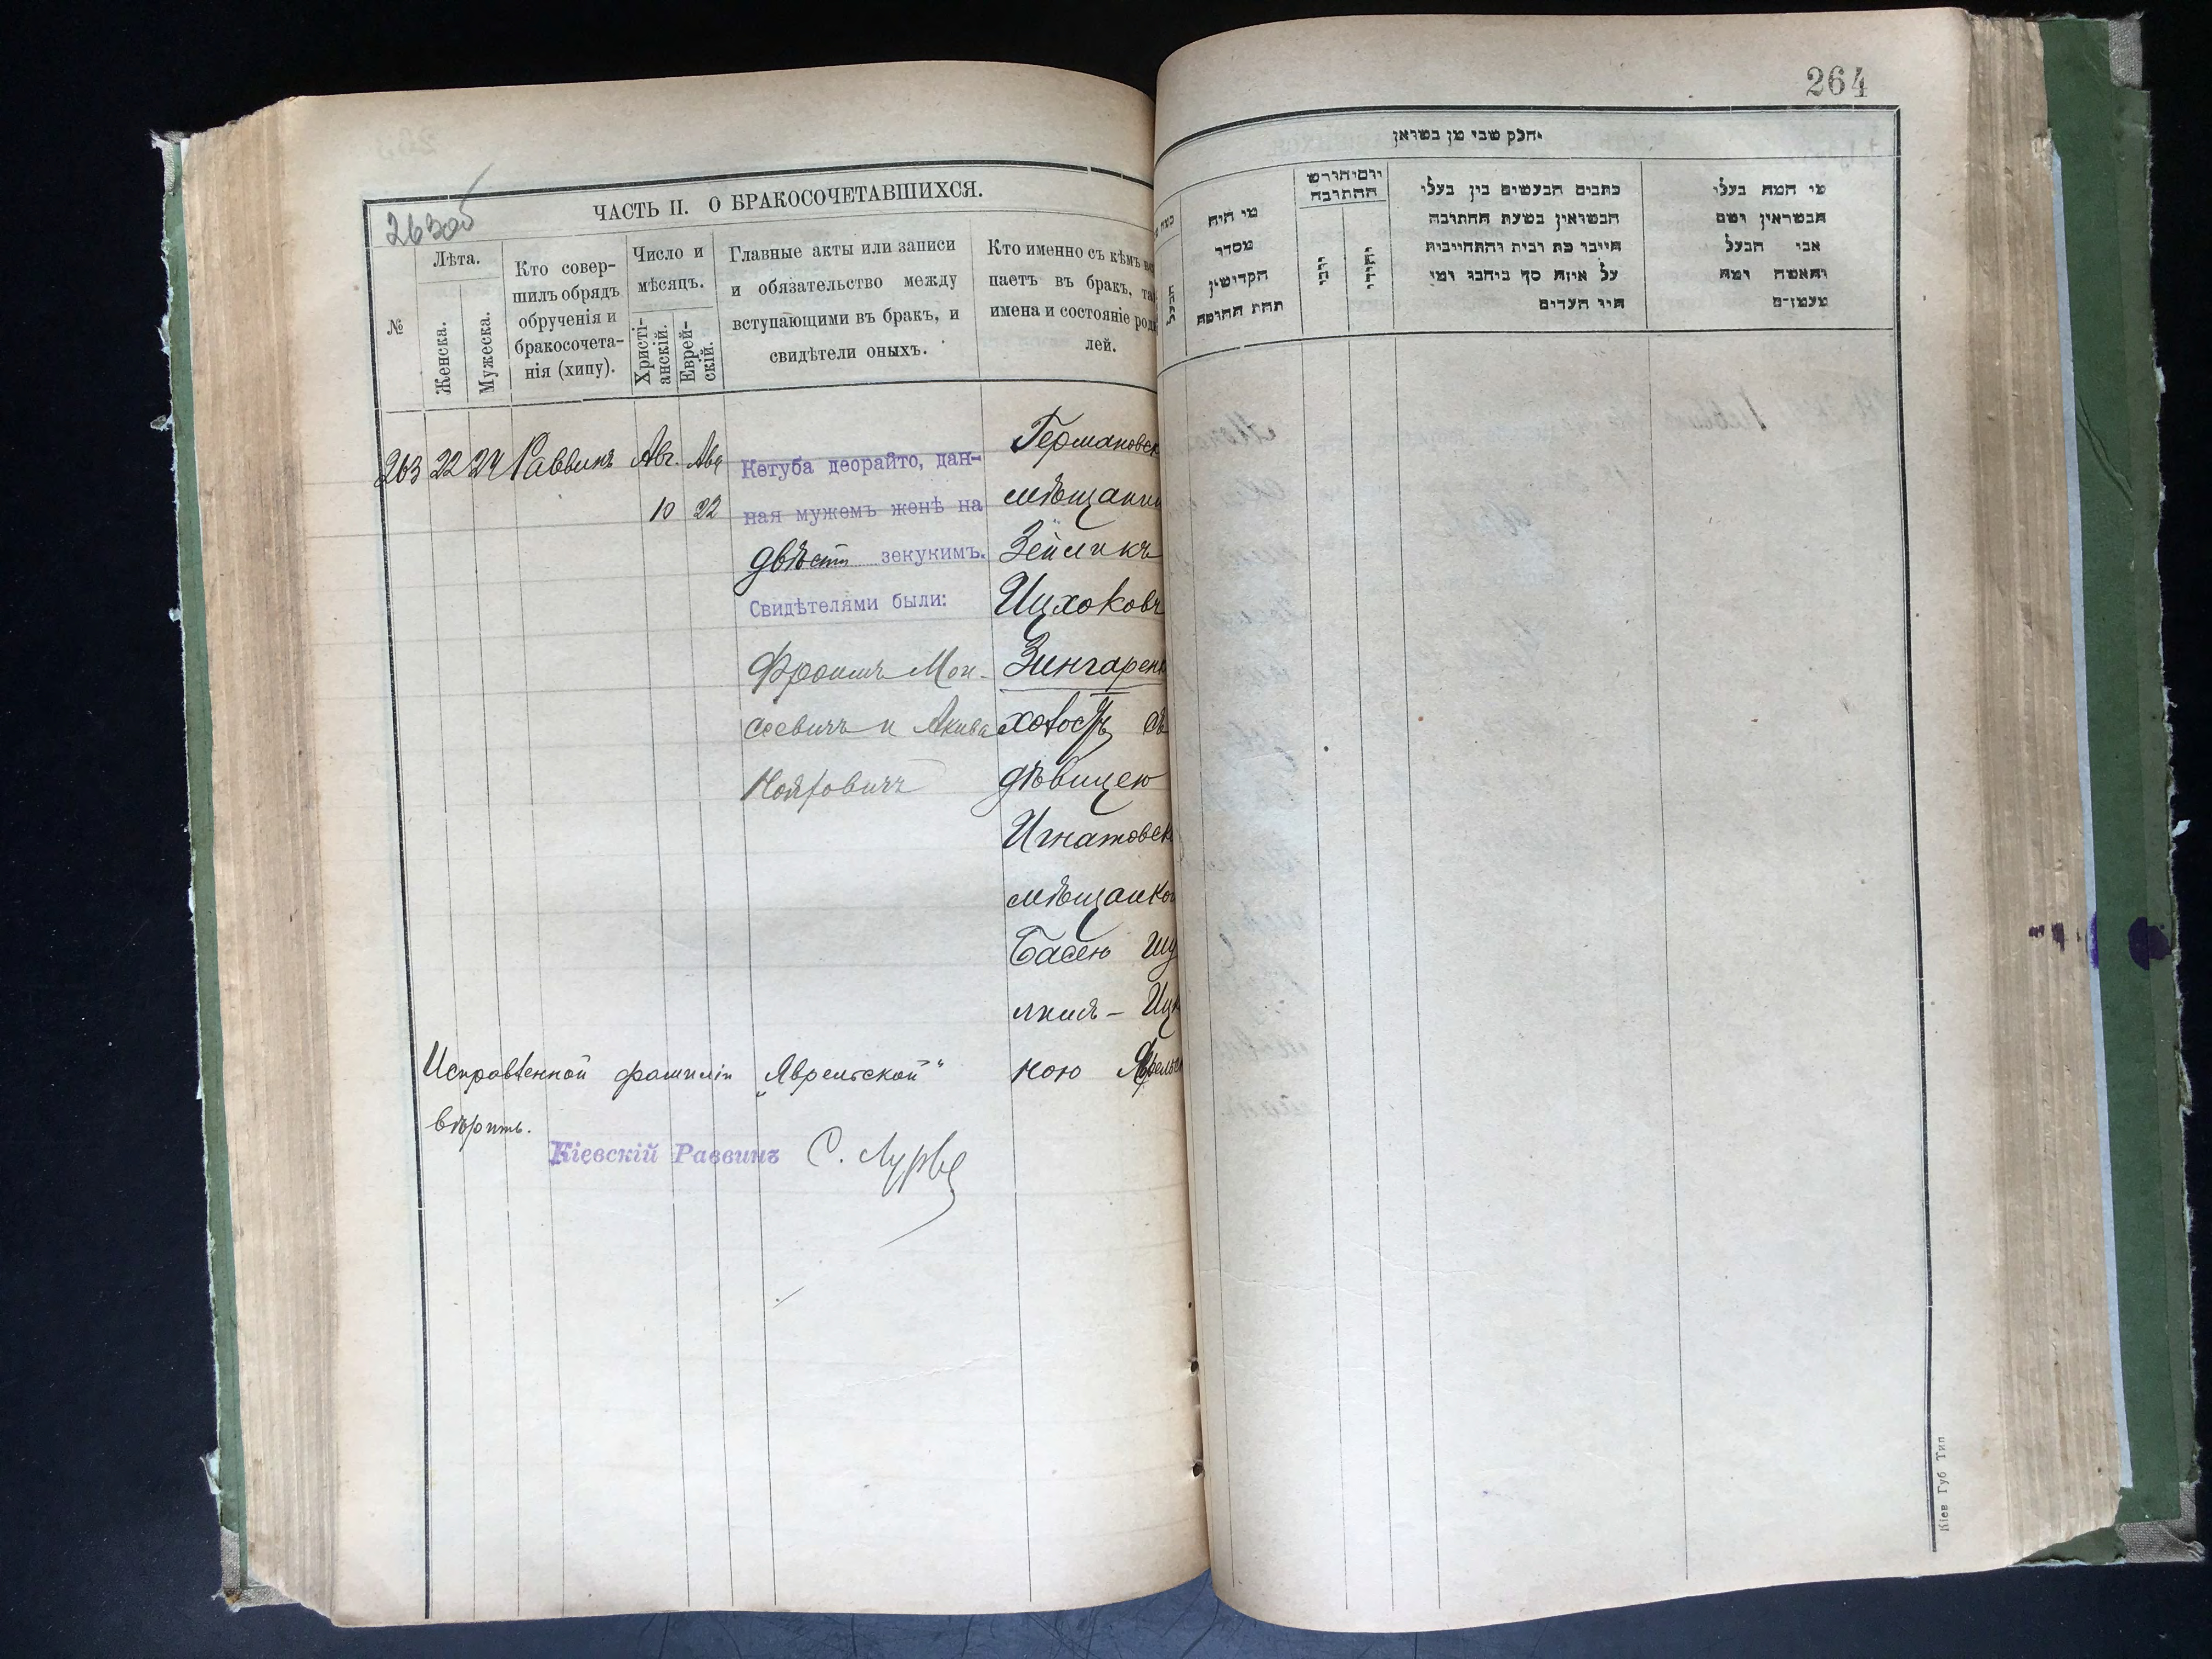 263об
ЧАСТЬ II. О БРАКОСОЧЕТАВШИХСЯ.
№
Лѣта.
Женска.
Мужеска.
Кто совер-
шилъ обрядъ
обрученія и
бракосочета-
нія (хипу).
Число и
мѣсяцъ.
Христі-
анскій.
Еврей-
скій.
Главные акты или записи
и обязательство между
вступающими въ бракъ, и
свидѣтели оныхъ.
Кто именно съ кѣмъ
паетъ въ бракъ,
имена и состояніе
лей.
263 22 24 Раввинъ Авг. Ава
10 22
Кетуба деорайто, дан-
ная мужемъ женѣ на
двѣсти зекукимъ.
Свидѣтелями были:
Фроимъ Мои-
сеевичъ и Акива
Германовск
мѣщанин
Зейликъ
Ицхоковъ
Зингарен
холостъ съ
дѣвицею
Игнатовск
мѣщанкой
Басею Шу
лимъ - Ицк
ною Яврельск
Исправленной фамиліи „Яврельской“
вѣрить.
Кіевскій Раввинъ С. Лурье
264
חלק שני מן נשואין
מי המה בעלי
הנשואין ושם
אבי הבעל
והאשה ומה
מעמדם
כתבים הנעשים בין בעלי
הנשואין בשעת החתונה
חייבו כת ובית והתחייבות
על איזה סך ביחבו ומי
היו העדים
יום וחודש
החתונה
יהודי
נוצרי
מי היה
מסדר
הקדושין
תחת החופה
הבעל
Кіев Губ Тип